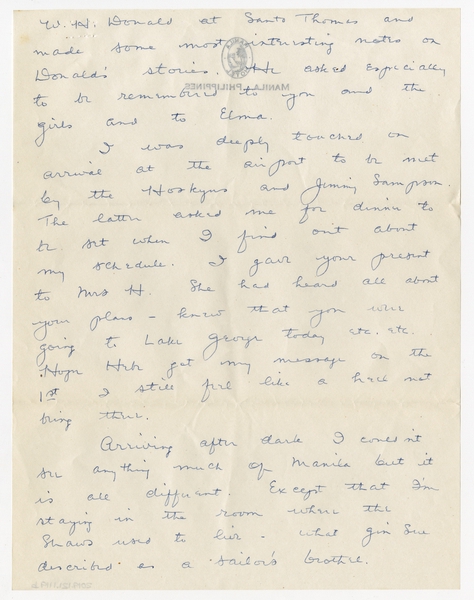 W. H. Donald at Santo Thomas and
made some most interesting notes on
Donald's stories. He asked especially
to be remembered to you and the
girls and to Elma.
I was deeply touched on
arrival at the airport to be met
by the Hoskyns and Jimmy Sampson.
The latter asked me for dinner to
be set when I find out about
my schedule. I gave your present
to Mrs H. She had heard all about
your plans – knew that you were
going to Lake George today etc. etc.
Hope Herb got my message on the
1st. I still feel like a heel not
being there.
Arriving after dark I couldn't
see anything much of Manila but it
is all different. Except that I'm
staying in the room where the
Shaws used to live - what Jim
described as a sailor's brothel.
MANILA PHILIPPINES